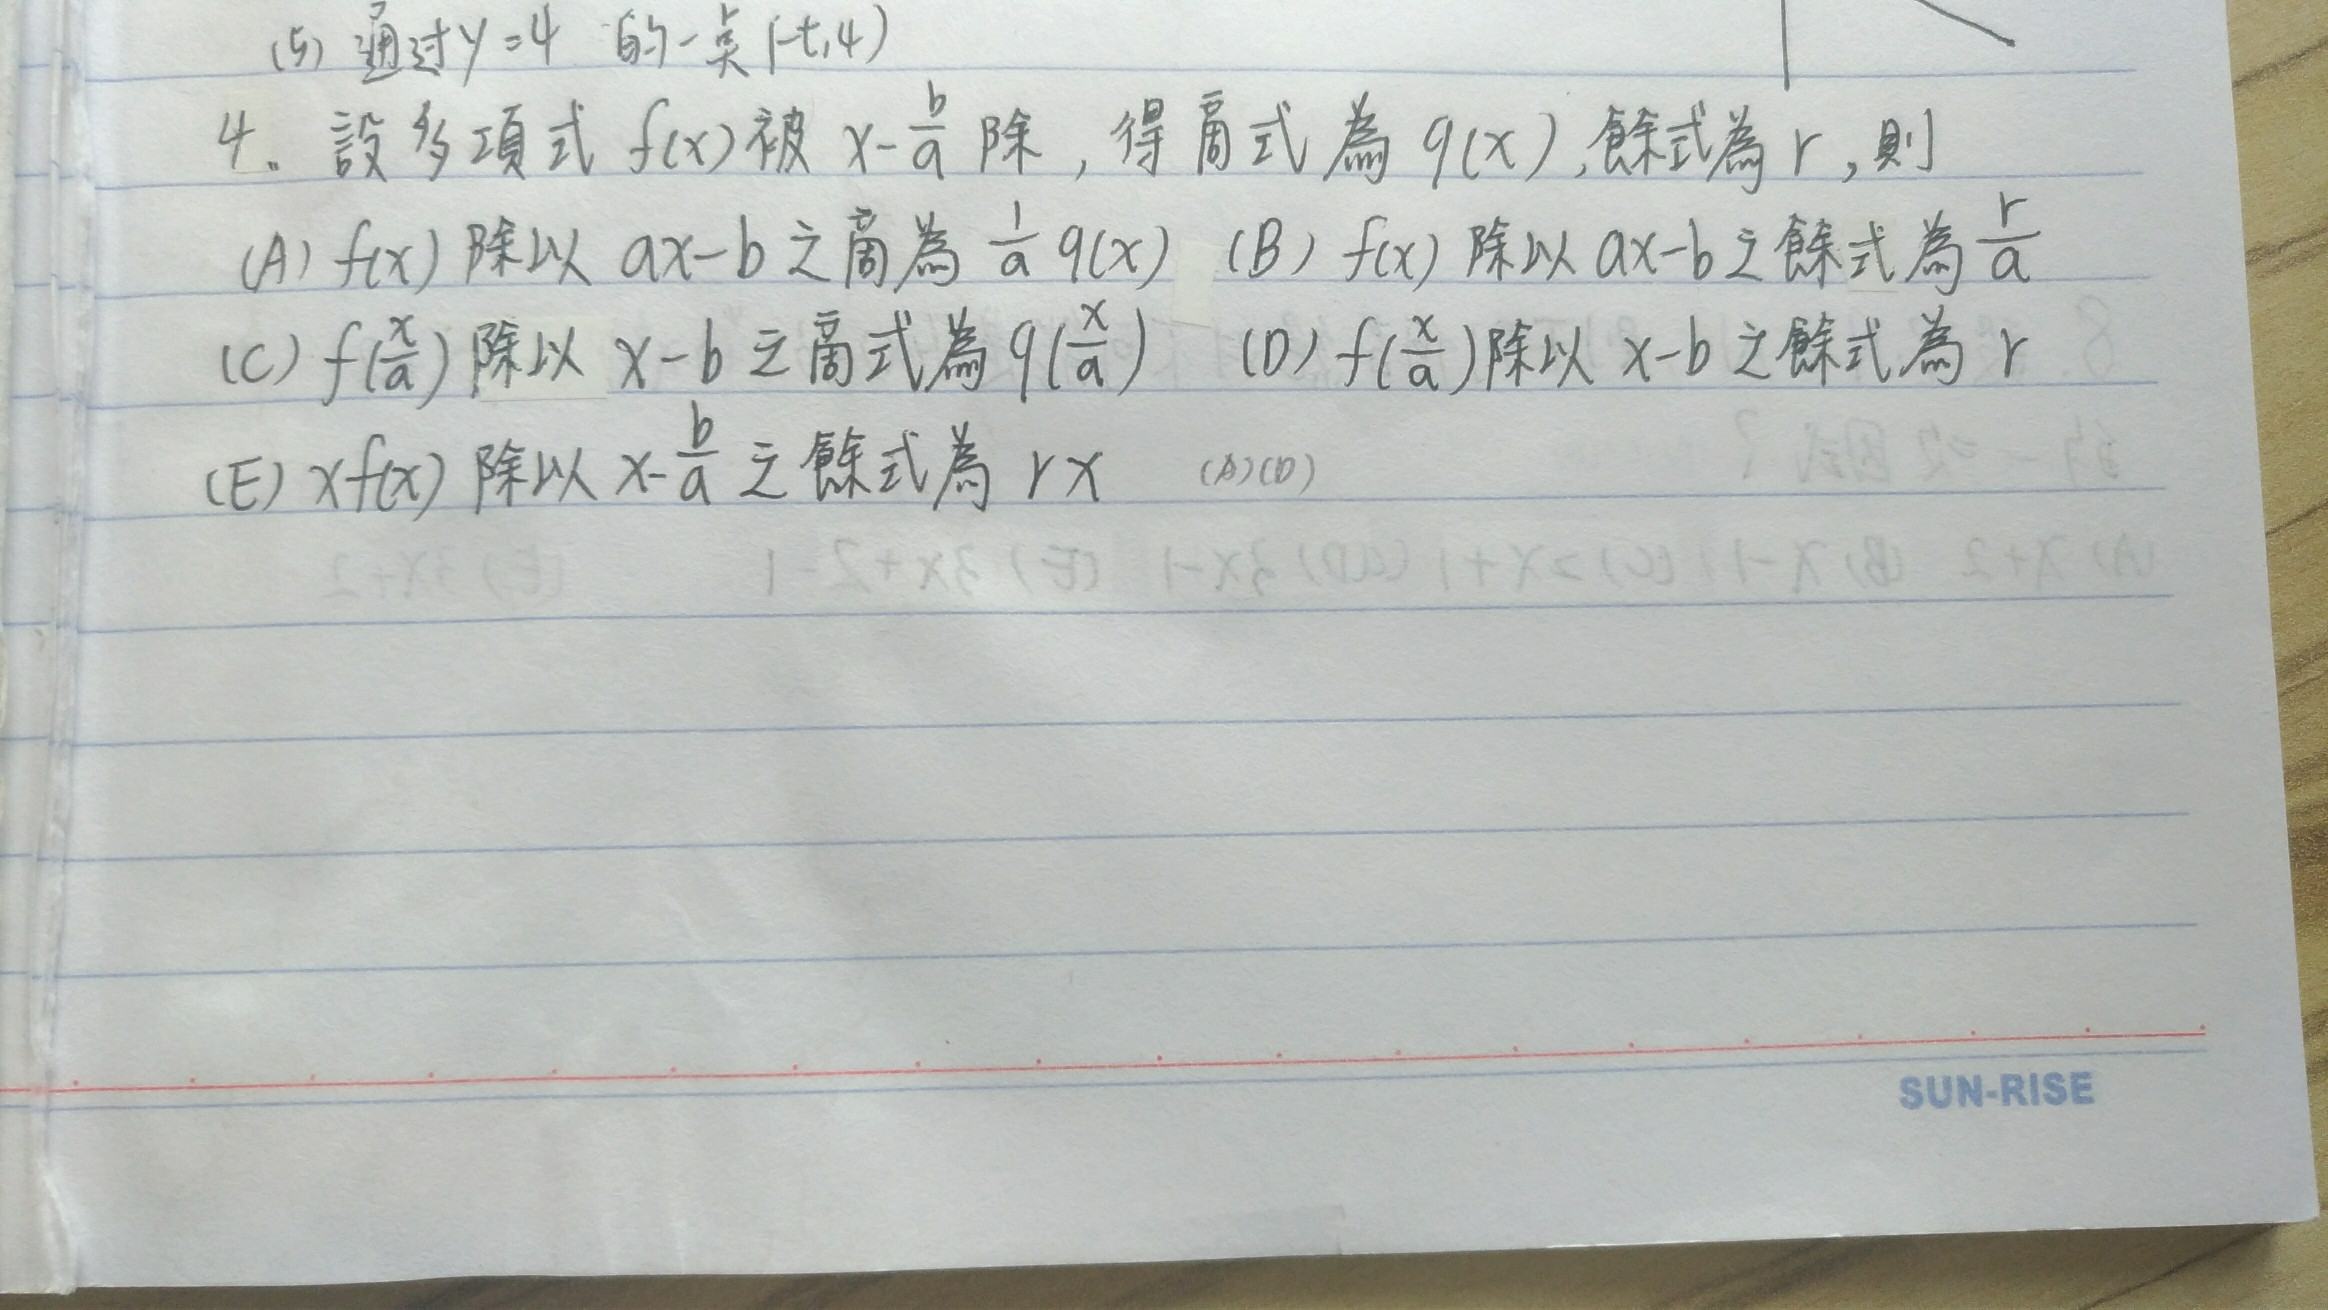 (5) 通过y=4 的一点(-t,4)
4. 設多項式 f(x) 被 x-b/a 除,得商式為 q(x),餘式為 r,則
(A) f(x) 除以 ax-b 之商為 1/a q(x) (B) f(x) 除以 ax-b 之餘式為 r/a
(C) f(x/a) 除以 x-b 之商式為 q(x/a) (D) f(x/a) 除以 x-b 之餘式為 r
(E) xf(x) 除以 x-b/a 之餘式為 rx (A)(D)
SUN-RISE